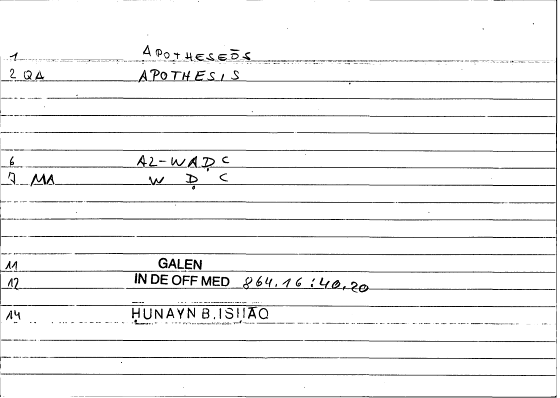 1 APOTHESEŌS
2 QA APOTHESIS
6 AL-WAḌC
7 MA W Ḍ C
11 GALEN
12 IN DE OFF MED 864.16:40.20
14 ḤUNAYN B. ISḤĀQ